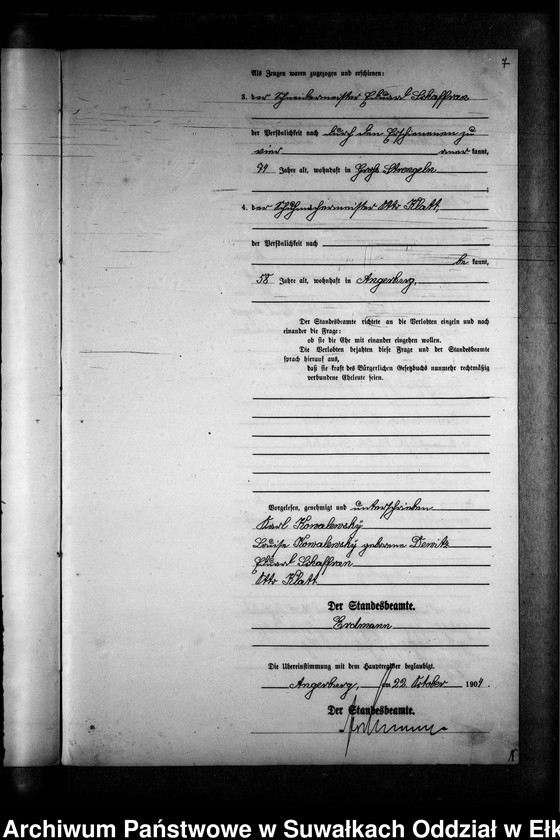 7
Als Zeugen waren zugezogen und erschienen:
3. der Schneidermeister Eduard Schaffran
der Persönlichkeit nach durch den Erschienenen zu
vier anerkannt,
71 Jahre alt, wohnhaft in Groß Strengeln
;
4. der Schuhmachermeister Otto Klatt,
der Persönlichkeit nach
be kannt,
58 Jahre alt, wohnhaft in Angerburg.
Der Standesbeamte richtete an die Verlobten einzeln und nach
einander die Frage:
ob sie die Ehe mit einander eingehen wollen.
Die Verlobten bejahten diese Frage und der Standesbeamte
sprach hierauf aus,
daß sie kraft des Bürgerlichen Gesetzbuchs nunmehr rechtmäßig
verbundene Eheleute seien.
Vorgelesen, genehmigt und unterschrieben
Karl Kowalewsky
Louise Kowalewsky geborene Dewitz
Eduard Schaffran
Otto Klatt
Der Standesbeamte.
Erdmann
Die Übereinstimmung mit dem Hauptregister beglaubigt.
Angerburg, am 22. October 1904.
Der Standesbeamte.
Erdmann
Archiwum Państwowe w Suwałkach Oddział w Ełk